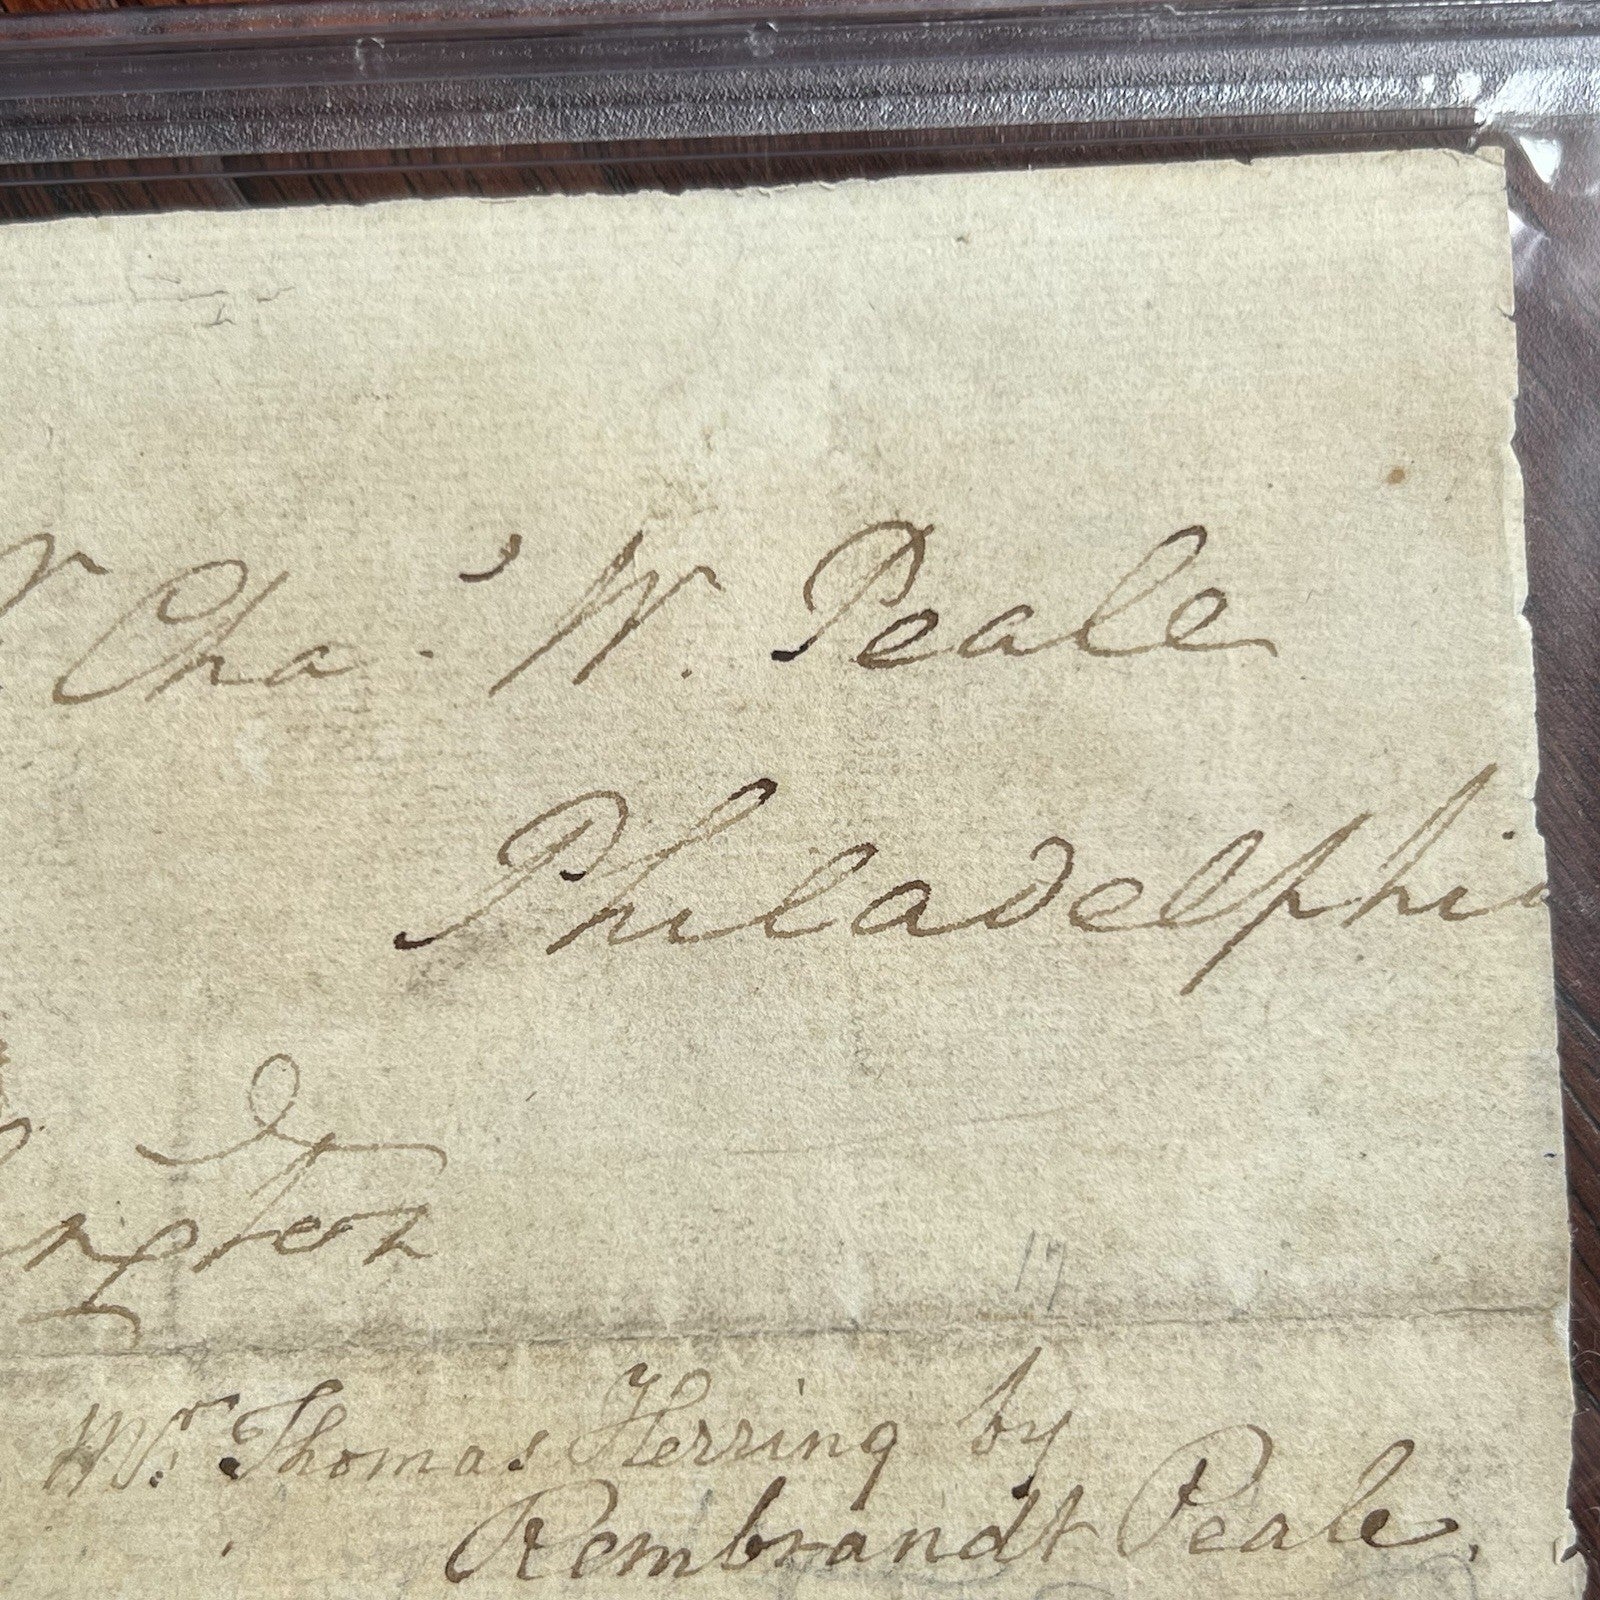 r Cha.s W. Peale
Philadelphi
ington
17
Mr. Thomas Herring by
Rembrandt Peale.